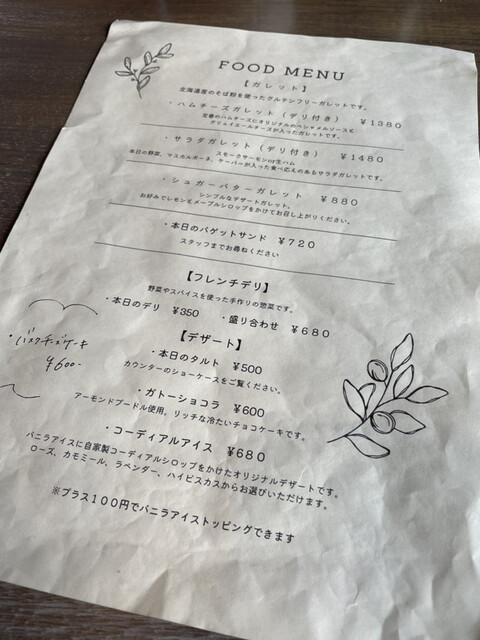 FOOD MENU
【ガレット】
北海道産のそば粉を使ったグルテンフリーガレットです。
・ハムチーズガレット（デリ付き） ¥1380
定番のハムチーズにオリジナルのベシャメルソースと
グリュイエールチーズが入ったガレットです。
・サラダガレット（デリ付き） ¥1480
スモークサーモンor生ハム
本日の野菜、マスカルポーネ、ケーパーが入った食べ応えのあるサラダガレットです。
・シュガーバターガレット ¥880
シンプルなデザートガレット。
お好みでレモンとメープルシロップをかけてお召し上がりください。
・本日のバゲットサンド ¥720
スタッフまでお尋ねください
【フレンチデリ】
野菜やスパイスを使った手作りの惣菜です。
・本日のデリ ¥350 ・盛り合わせ ¥680
【デザート】
・本日のタルト ¥500
カウンターのショーケースをご覧ください。
・バスクチーズケーキ
¥600-
・ガトーショコラ ¥600
アーモンドプードル使用。リッチな冷たいチョコケーキです。
・コーディアルアイス ¥680
バニラアイスに自家製コーディアルシロップをかけたオリジナルデザートです。
ローズ、カモミール、ラベンダー、ハイビスカスからお選びいただけます。
※プラス100円でバニラアイストッピングできます